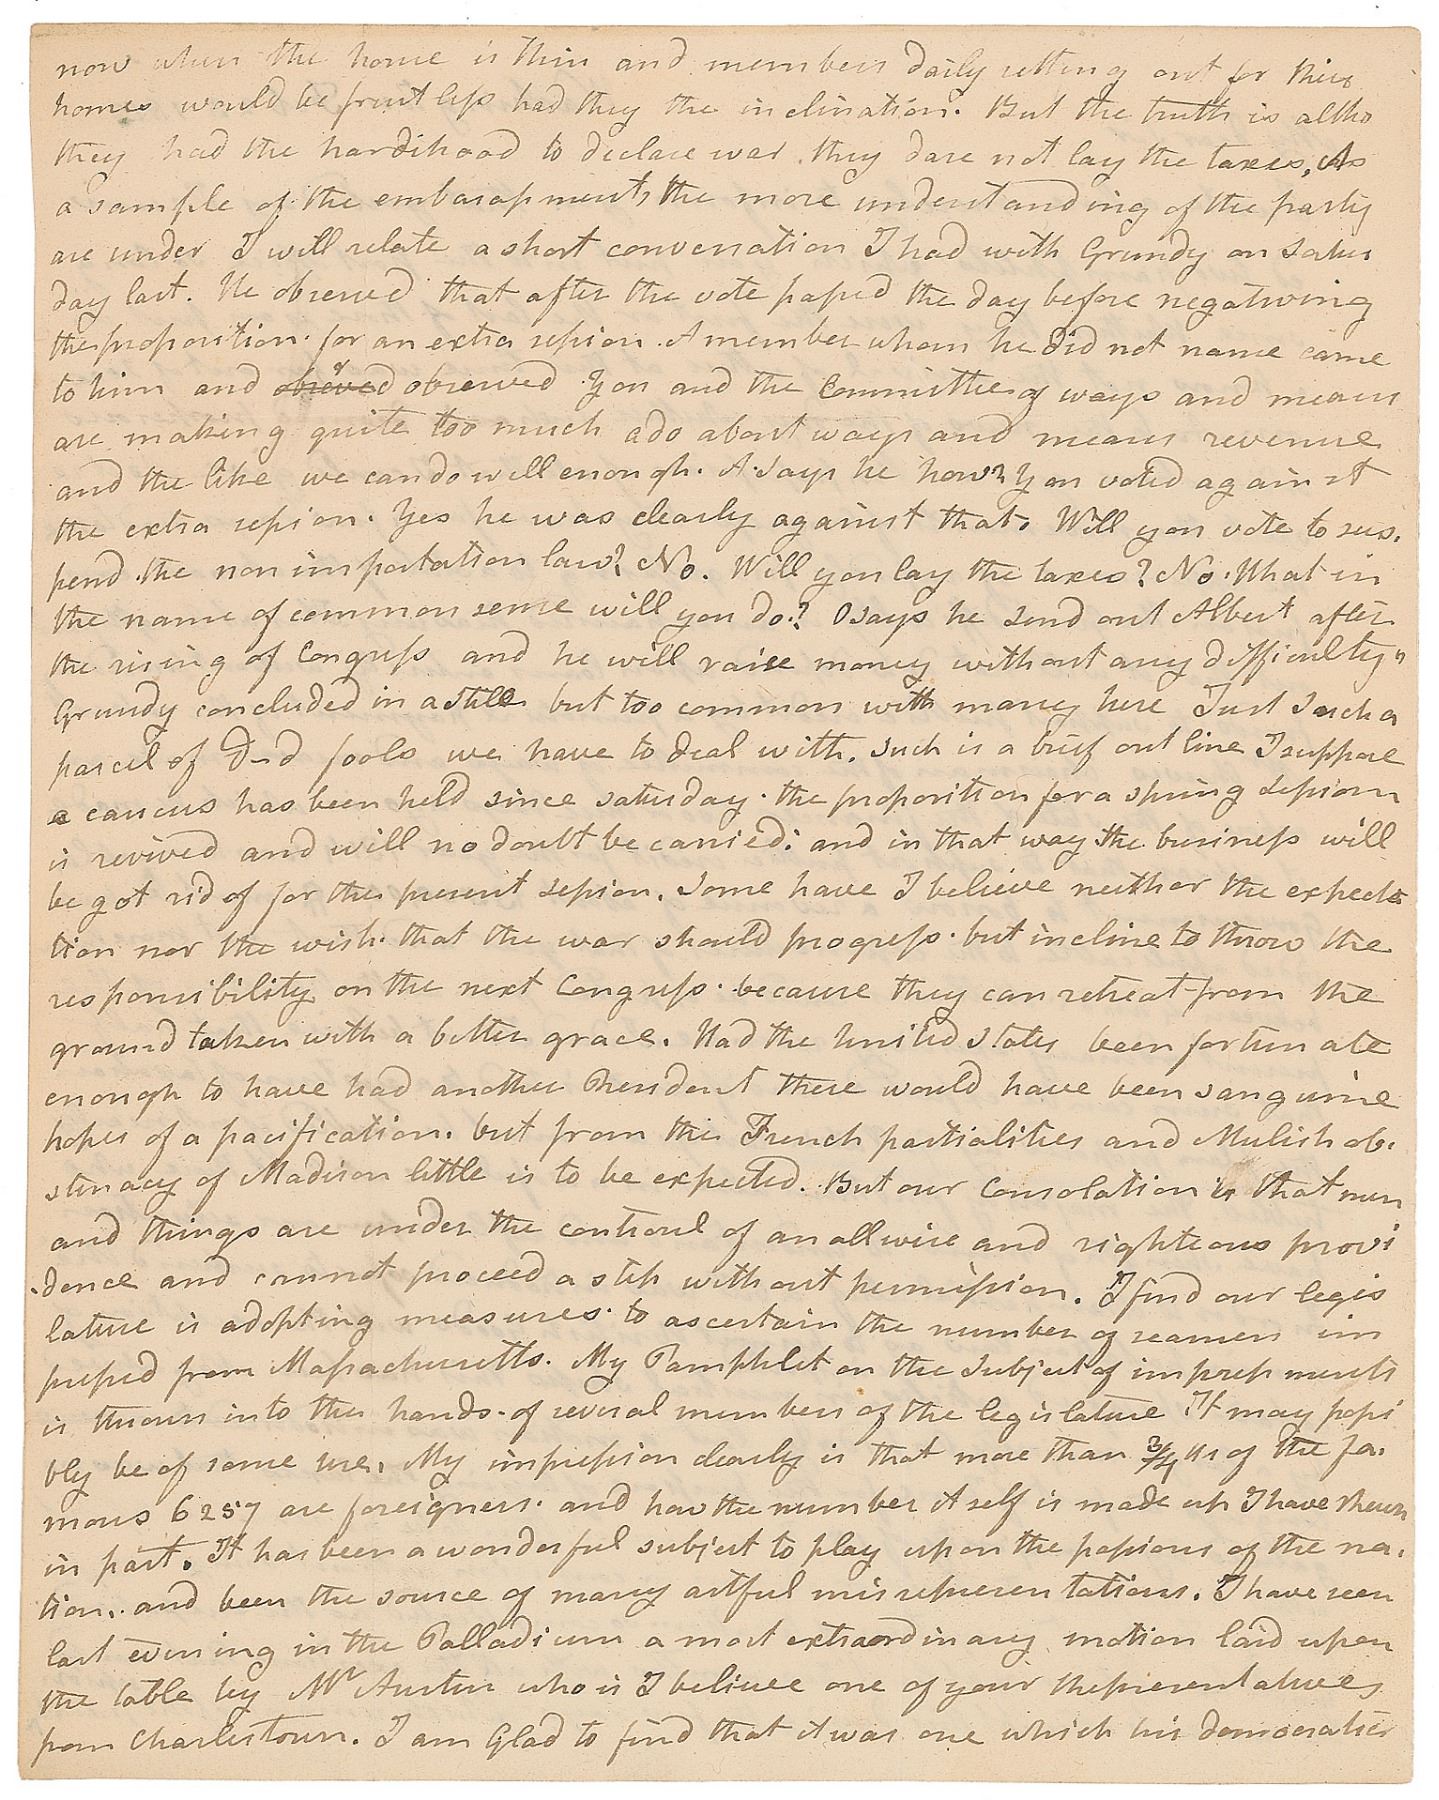 now when the house is thin and members daily setting out for their
homes would be fruitless had they the inclination. But the truth is altho
they had the hardihood to declare war they dare not lay the taxes, As
a sample of the embarassments the more understanding of the party
are under I will relate a short conversation I had with Grundy on Satur
day last. He observed that after the vote passed the day before negativing
the proposition for an extra session. A member whom he did not name came
to him and observed observed You and the Committee of ways and means
are making quite too much ado about ways and means revenue
and the like we can do well enough. A says he how? You voted against
the extra session. Yes he was clearly against that. Will you vote to sus.
pend the non importation law? No. Will you lay the taxes? No. What in
the name of common sense will you do? O says he send out Albert after
the rising of Congress and he will raise money without any difficulty"
Grundy concluded in a stile but too common with many here Just such a
parcel of D-d fools we have to deal with. Such is a brief out line I suppose
a caucus has been held since saturday. the proposition for a spring Session
is revived and will no doubt be carried: and in that way the business will
be got rid of for the present Session. Some have I believe neither the expecta
tion nor the wish that the war should progress. but incline to throw the
responsibility on the next Congress. because they can retreat from the
ground taken with a better grace. Had the United States been fortunate
enough to have had another President there would have been sanguine
hopes of a pacification. but from the French partialities and Mulish ob.
stinacy of Madison little is to be expected. But our Consolation is that men
and things are under the controul of an all wise and righteous provi
.dence and cannot proceed a step without permission. I find our legis
lature is adopting measures to ascertain the number of seamen im
pressed from Massachusetts. My Pamphlet on the Subject of impressments
is thrown into the hands of several members of the legislature It may possi
bly be of some use. My impression clearly is that more than 3/4 ths of the fa.
mous 6257 are foreigners. and how the number itself is made up I have shewn
in part. It has been a wonderful subject to play upon the passions of the na.
tion. and been the source of many artful misrepresentations. I have seen
last evening in the Palladium a most extraordinary motion laid upon
the table by Mr Austin who is I believe one of your Representatives
from Charlestown. I am Glad to find that it was one which his democratic